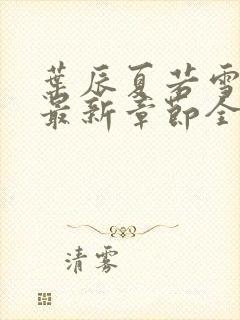 葉辰夏若雪
最新章節全
清雾